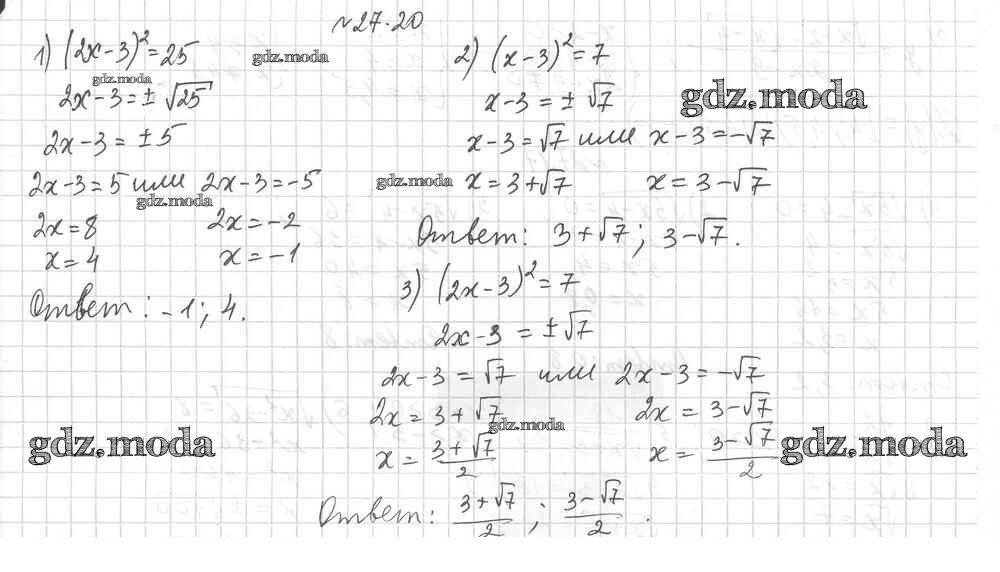 №27.20
1) (2x-3)²=25
2x-3=±√25
2x-3=±5
2x-3=5 или 2x-3=-5
2x=8 2x=-2
x=4 x=-1
Ответ: -1; 4.
2) (x-3)²=7
x-3=±√7
x-3=√7 или x-3=-√7
x=3+√7 x=3-√7
Ответ: 3+√7; 3-√7.
3) (2x-3)²=7
2x-3=±√7
2x-3=√7 или 2x-3=-√7
2x=3+√7 2x=3-√7
x=(3+√7)/2 x=(3-√7)/2
Ответ: (3+√7)/2; (3-√7)/2.
gdz.moda
gdz.moda
gdz.moda
gdz.moda
gdz.moda
gdz.moda
gdz.moda
gdz.moda